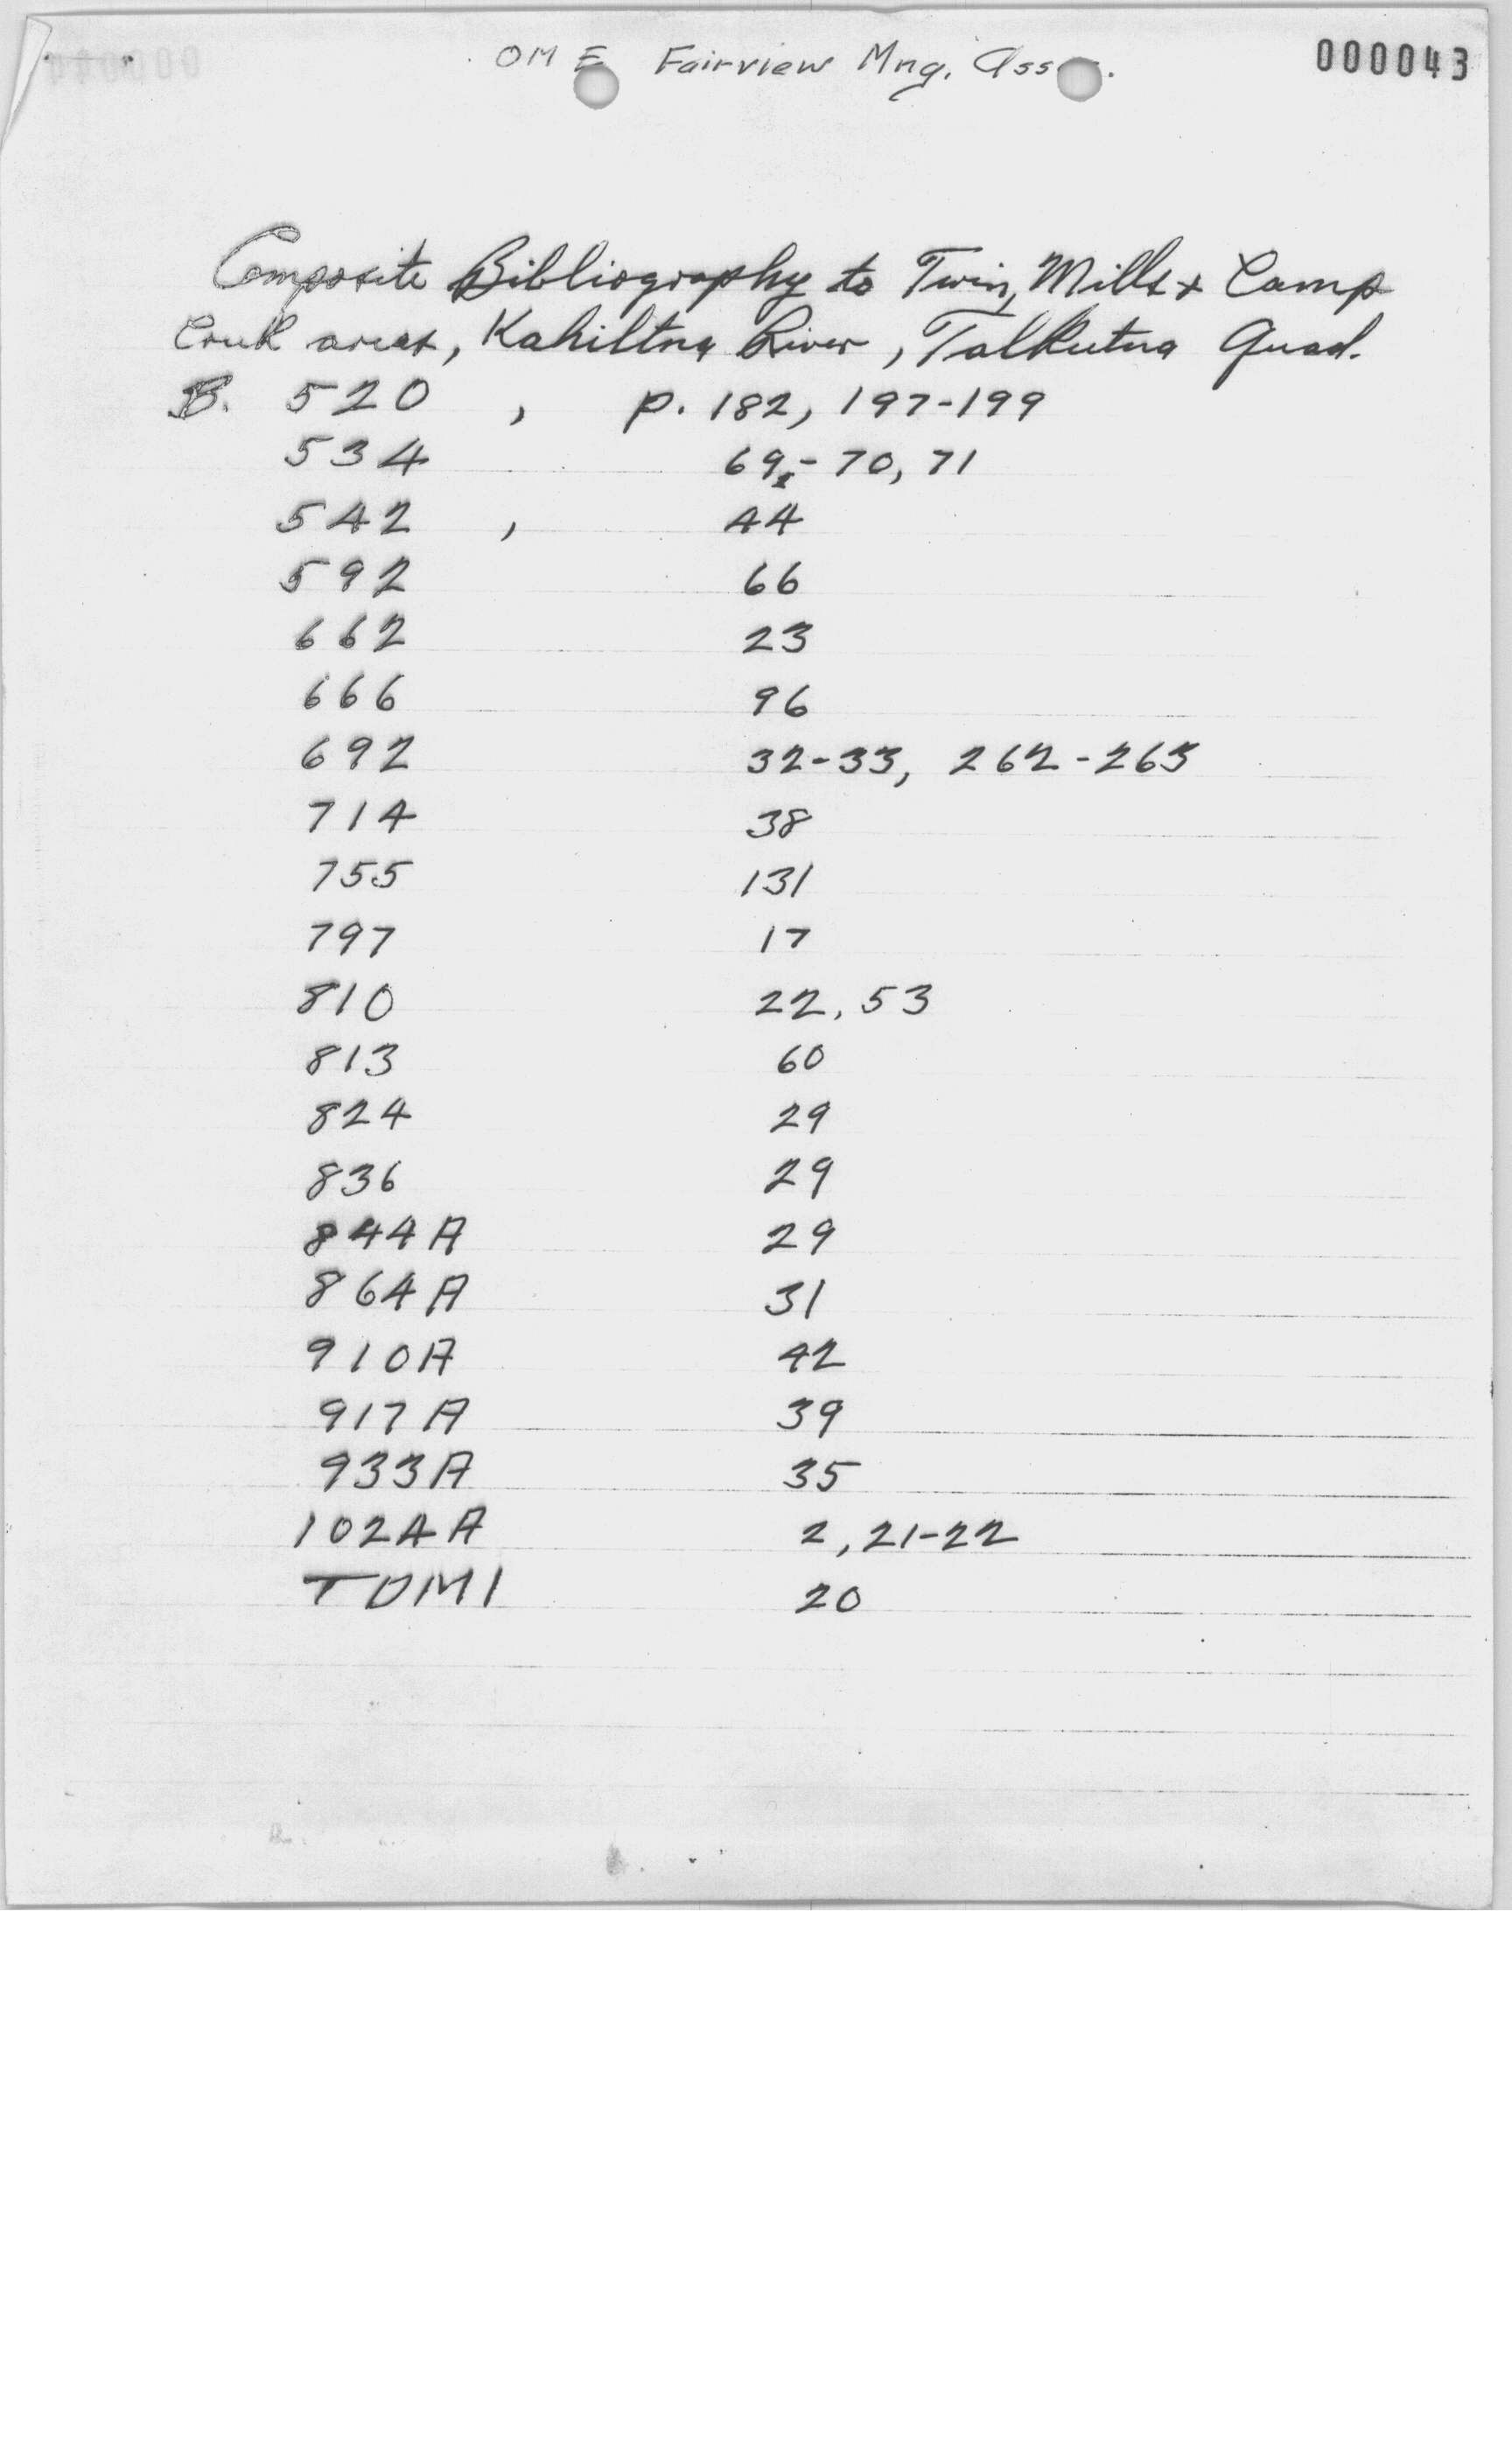 OME Fairview Mng. Ass . 000043
Composite Bibliography to Twin, Mills & Camp
Creek areas, Kahiltna River, Talkeetna Quad.
B. 520 , p. 182, 197-199
534 69-70, 71
542 , 44
592 66
662 23
666 96
692 32-33, 262-263
714 38
755 131
797 17
810 22, 53
813 60
824 29
836 29
844A 29
864A 31
910A 42
917A 39
933A 35
1024A 2, 21-22
TDM1 20